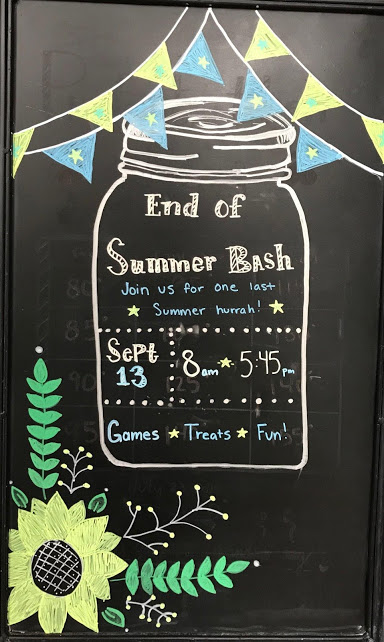 End of
Summer Bash
Join us for one last
Summer hurrah!
Sept
13
8am 5:45pm
Games ★ Treats ★ Fun!